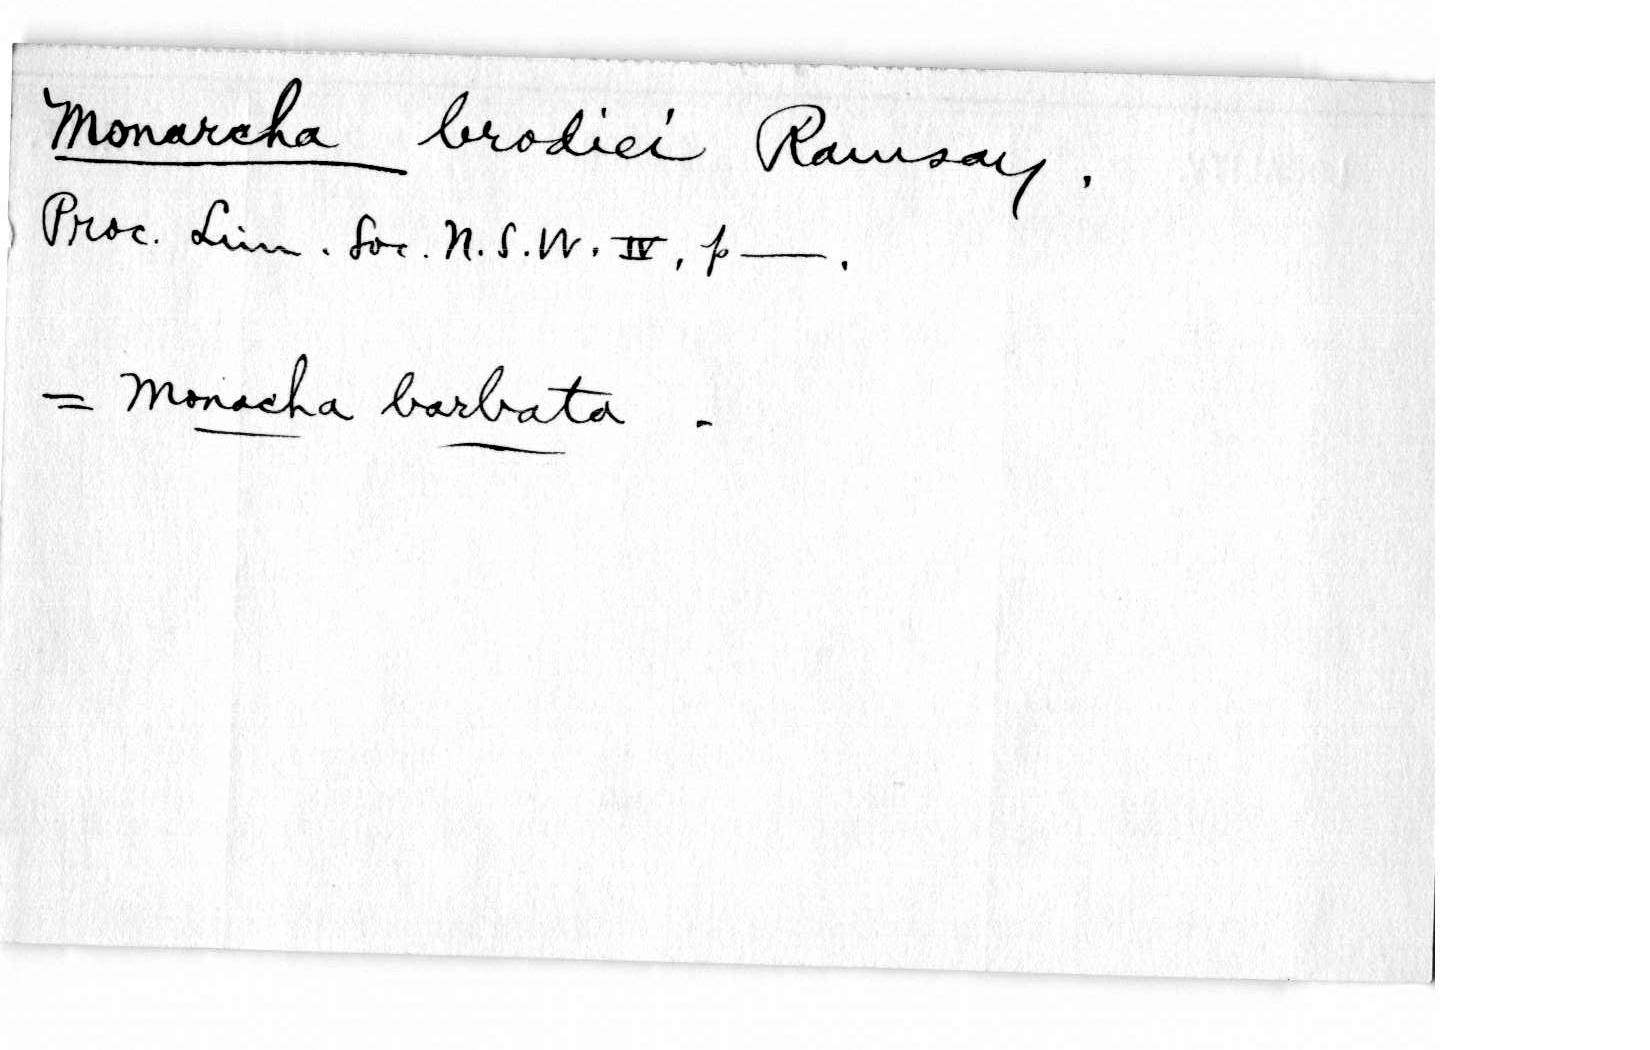 Monarcha brodiei Ramsay.
Proc. Linn. Soc. N.S.W. IV, p —.
= Monacha barbata.